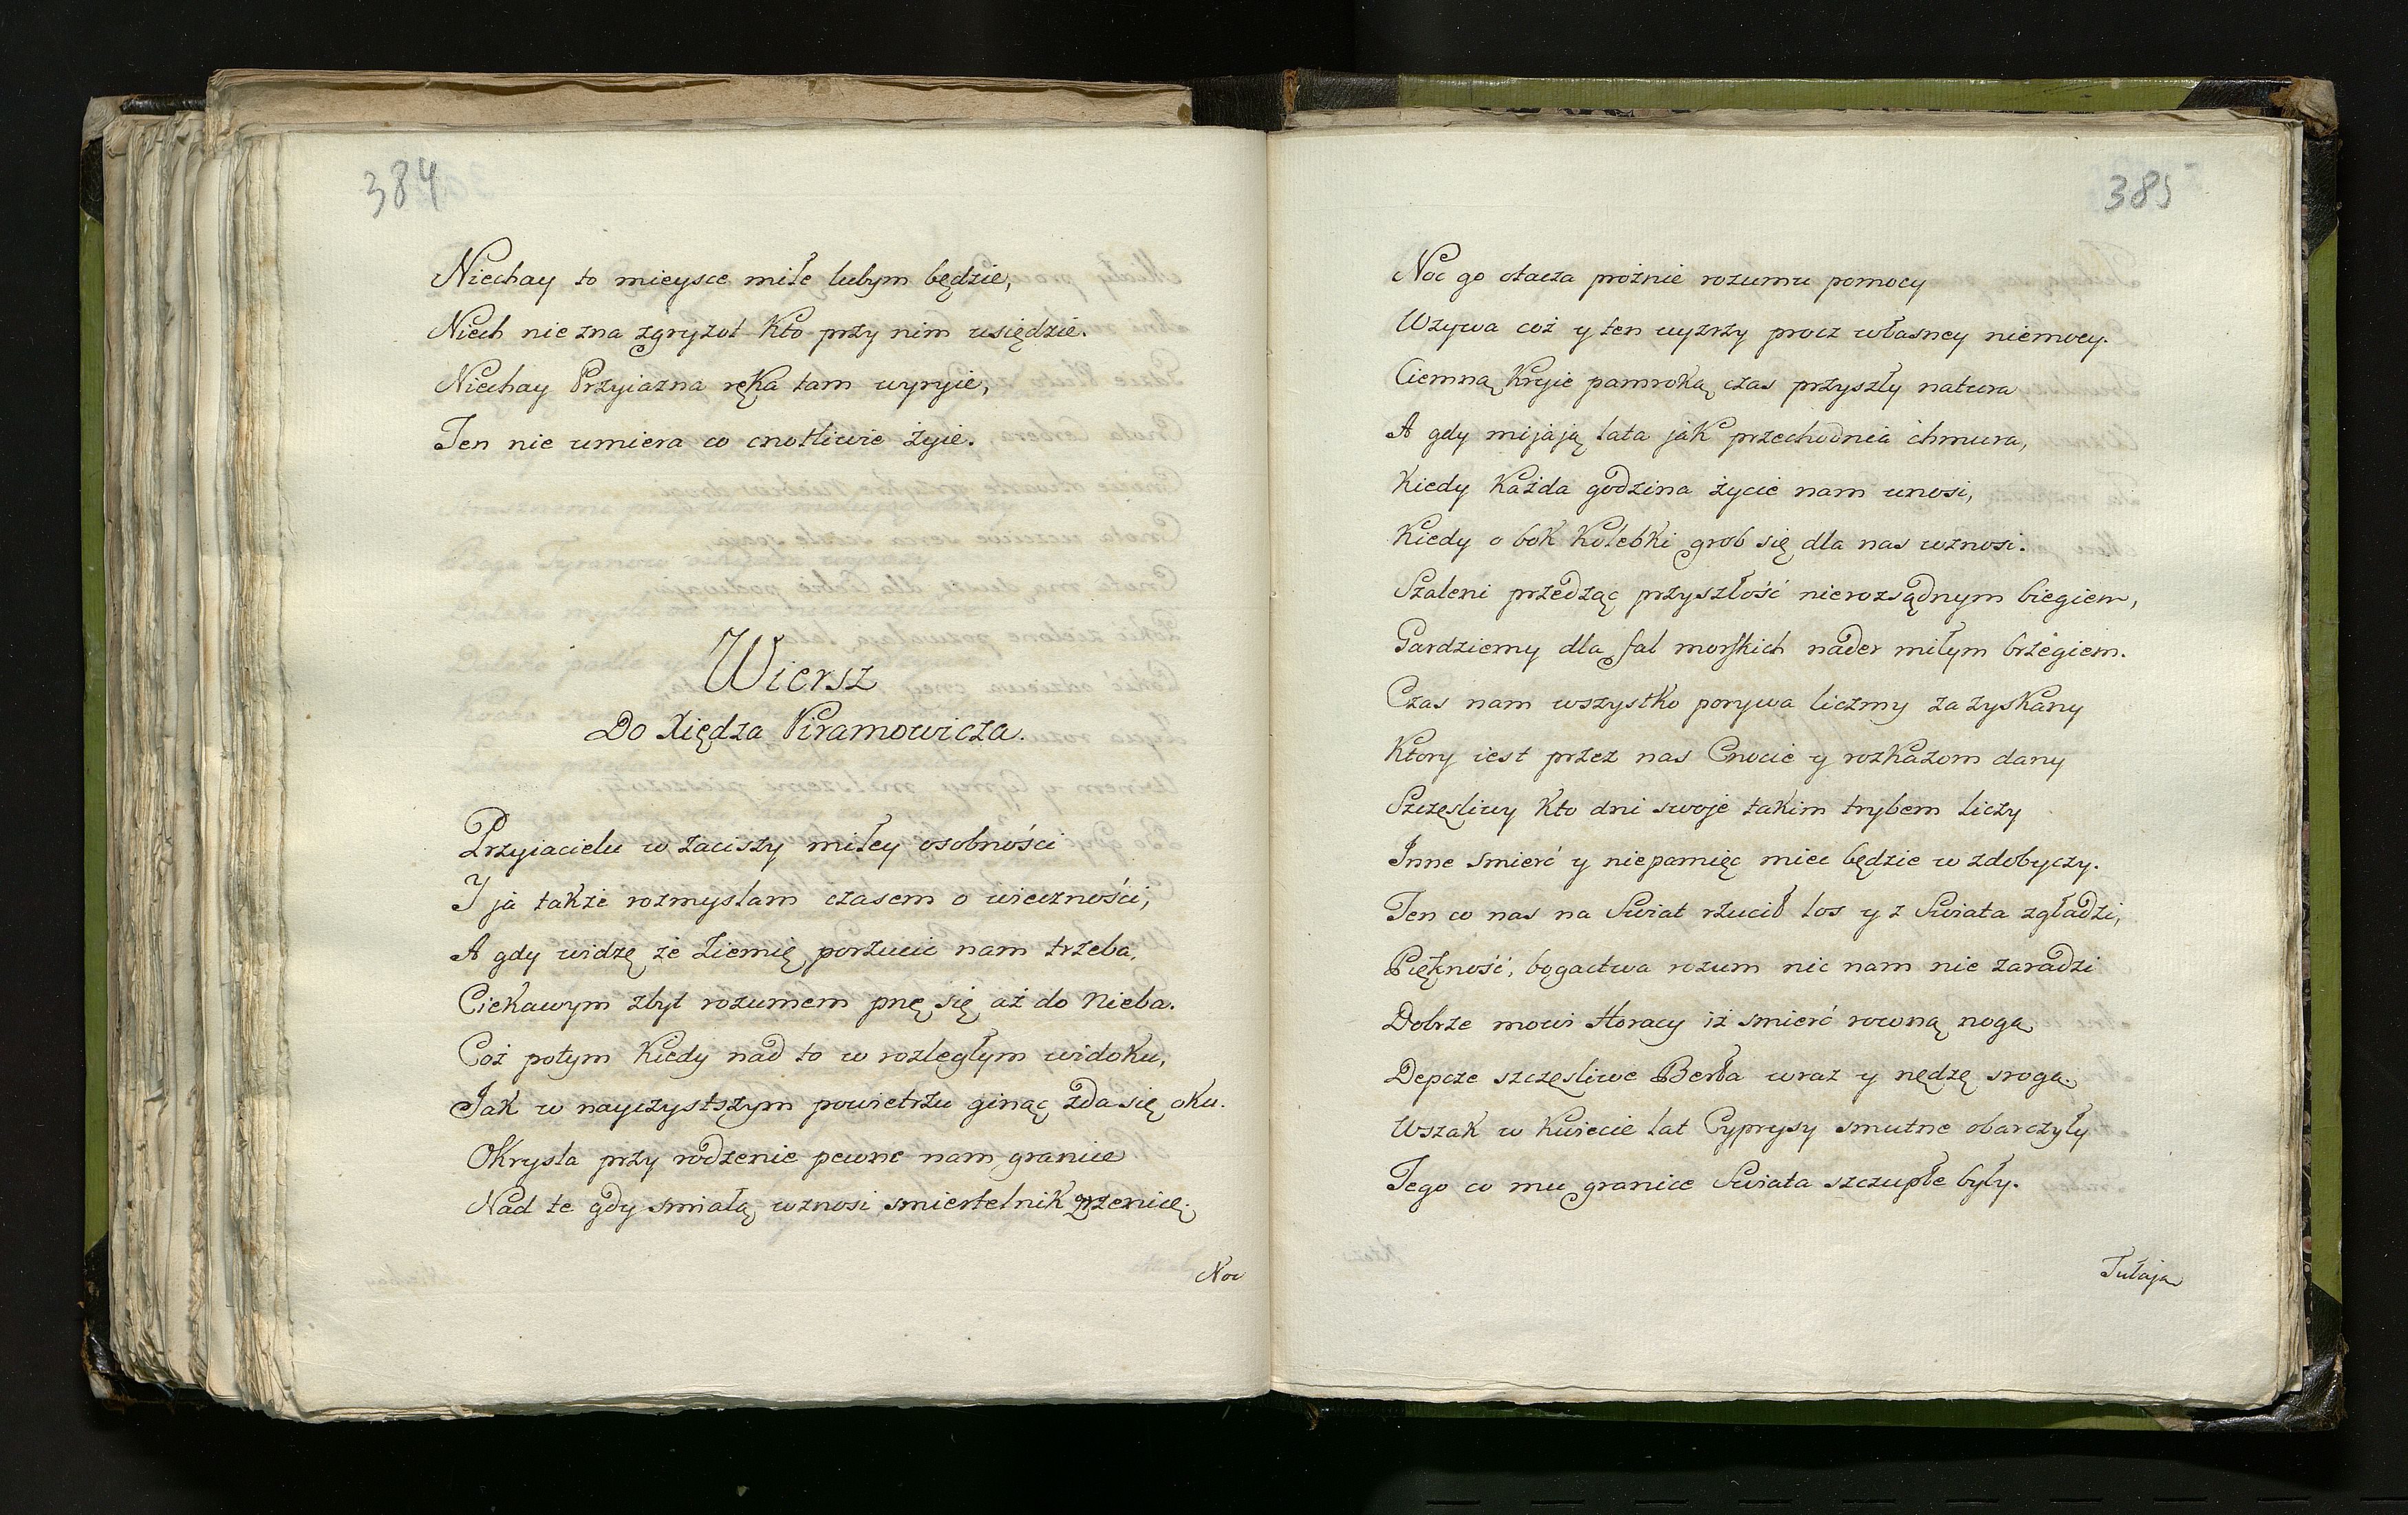 384
Niechay to mieysce miłe lubym będzie,
Niech nie zna zgryzot kto przy nim usiędzie.
Niechay Przyiazna ręka tam wyryie,
Ten nie umiera co cnotliwie żyie.
Wiersz
Do Xiędza Piramowicza.
Przyiacielu w zaciszy miłey osobności
Y ja także rozmyslam czasem o wieczności,
A gdy widzę że Ziemię porzucic nam trzeba,
Ciekawym zbyt rozumem pnę się aż do Nieba.
Coż potym kiedy nad to w rozległym widoku,
Jak w nayczystszym powietrzu ginąc zda się oku.
Okrysla przyrodzenie pewne nam granice
Nad te gdy smiałą wznosi smiertelnik zrzenicę.
Noc
385
Noc go otacza prożnie rozumu pomocy
Wzywa coż y ten uyzrzy procz własney niemocy.
Ciemną kryie pamroką czas przyszły natura
A gdy mijają lata jak przechodnia chmura,
Kiedy każda godzina życie nam unosi,
Kiedy o bok kolebki grob się dla nas wznosi.
Szaleni przedząc przyszłość nierozsądnym biegiem,
Gardziemy dla fal morskich nader miłym brzegiem.
Czas nam wszystko porywa liczmy za zyskany
Ktory iest przez nas Cnocie y rozkazom dany
Szczęsliwy kto dni swoje takim trybem liczy
Inne smierć y niepamięc miec będzie w zdobyczy.
Ten co nas na Swiat rzucił los y z Swiata zgładzi,
Piękność, bogactwa rozum nic nam nie zaradzi
Dobrze mowi Horacy iż smierć rowną nogą
Depcze szczęsliwe Berła wraz y nędzę srogą.
Wszak w kwiecie lat Cyprysy smutne obarczyły
Tego co mu granice Swiata szczupłe były.
Tułaja